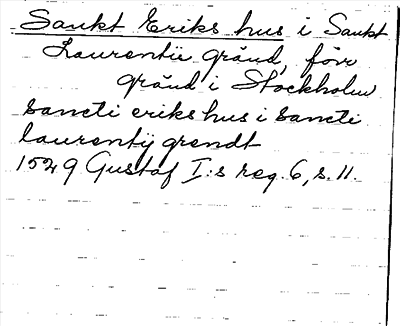 Sankt Eriks hus i Sankt
Laurentii gränd, förr
gränd i Stockholm
sancti eriks hus i sancti
laurentij grendt
1529 Gustaf I:s reg. 6, s. 11.